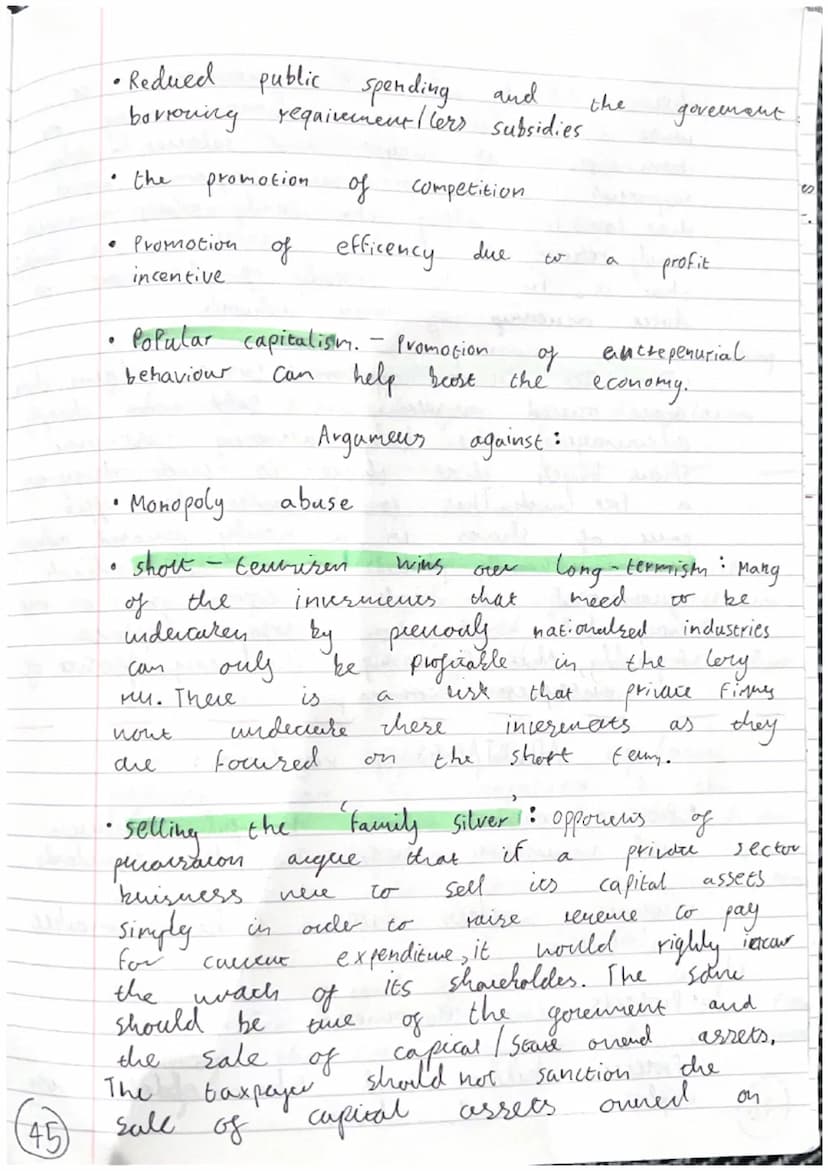 • Reduced public spending and the goverment
borrowing requirement/less subsidies
• the promotion of competition
• Promotion of efficency due to a profit
incentive
• Popular capitalism. - Promotion of entrepenurial
behaviour can help boost the economy.
Arguments against:
• Monopoly abuse
• short-termism wins over long-termism: Many
of the investments that need to be
undertaken by previously nationalised industries
can only be profitable in the long
run. There is a risk that private firms
wont undertake these investments as they
are focused on the short term.
• selling the 'family silver': opponents of
privatisation argue that if a private sector
business were to sell its capital assets
simply in order to raise revenue to pay
for current expenditure, it would rightly incur
the wrath of its shareholders. The same
should be true of the goverment and
the sale of capital/state owned assets.
The taxpayer should not sanction the
sale of capital assets owned on
45